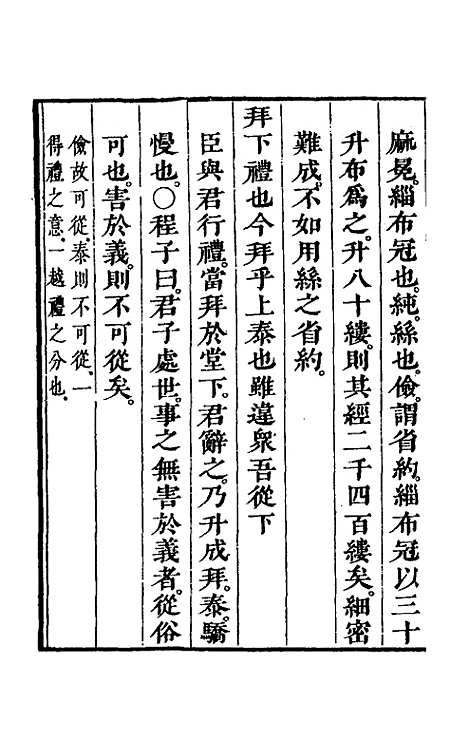 麻冕。緇布冠也。純。絲也。儉。謂省約。緇布冠以三十
升布爲之。升八十縷。則其經二千四百縷矣。細密
難成。不如用絲之省約。
拜下禮也今拜乎上泰也雖違衆吾從下
臣與君行禮。當拜於堂下。君辭之。乃升成拜。泰。驕
慢也。○程子曰。君子處世。事之無害於義者。從俗
可也。害於義。則不可從矣。
儉故可從。泰則不可從。一
得禮之意。一越禮之分也。